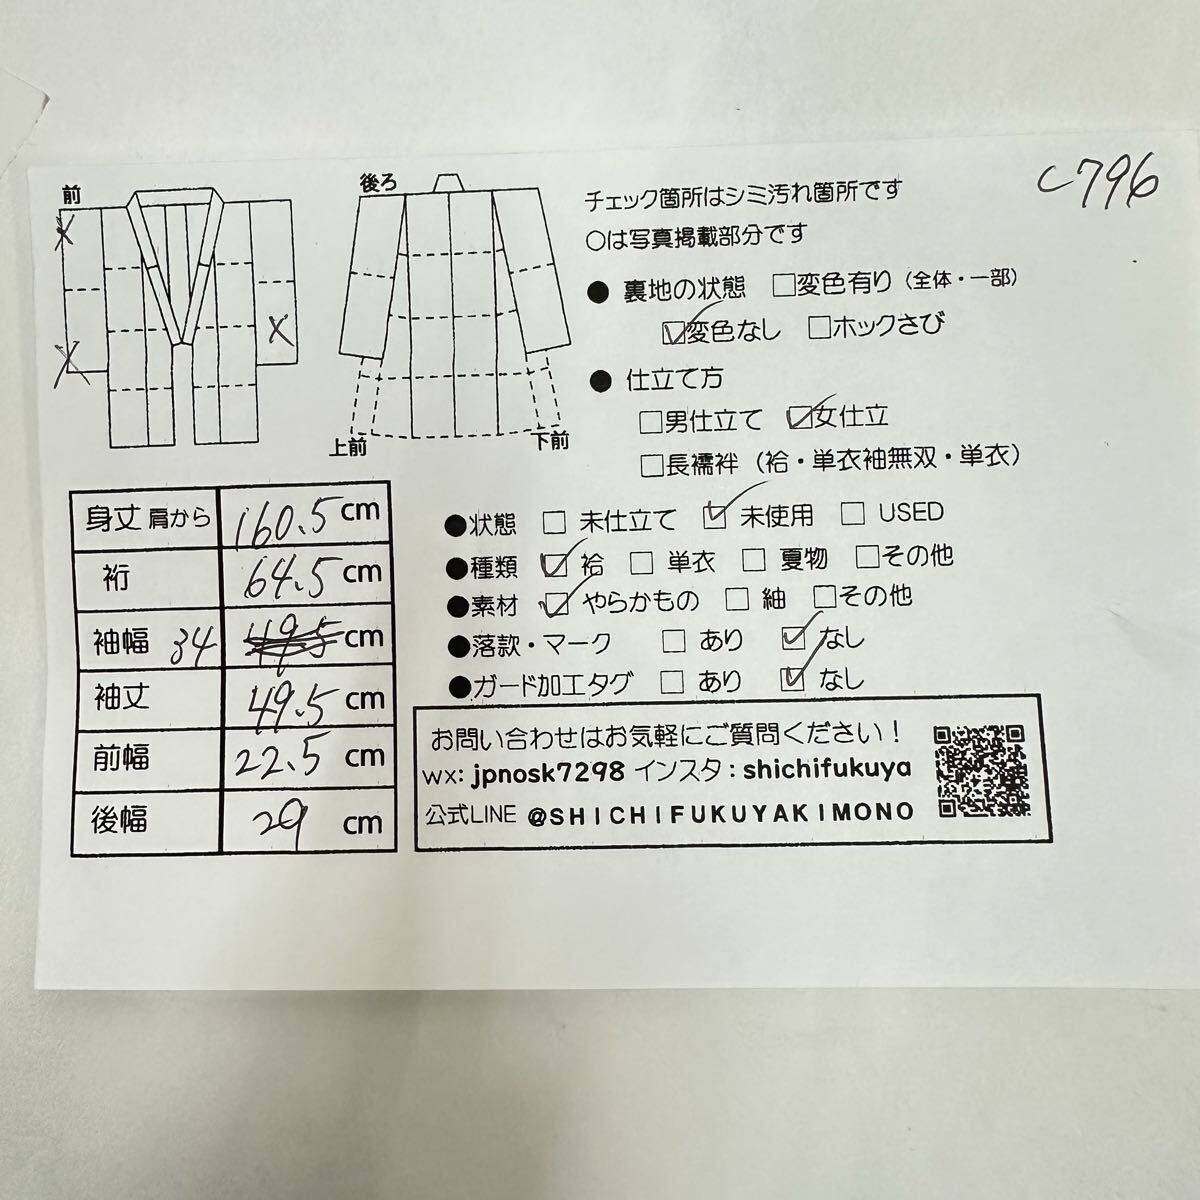 C796
前
後ろ
上前
下前
チェック箇所はシミ汚れ箇所です
○は写真掲載部分です
● 裏地の状態 □変色有り(全体・一部)
☑変色なし □ホックさび
● 仕立て方
□男仕立て ☑女仕立
□長襦袢(袷・単衣袖無双・単衣)
身丈 肩から 160.5 cm
裄 64.5 cm
袖幅 34 49.5 cm
袖丈 49.5 cm
前幅 22.5 cm
後幅 29 cm
●状態 □ 未仕立て ☑ 未使用 □ USED
●種類 ☑ 袷 □ 単衣 □ 夏物 □その他
●素材 ☑ やらかもの □ 紬 □その他
●落款・マーク □ あり ☑ なし
●ガード加工タグ □ あり ☑ なし
お問い合わせはお気軽にご質問ください!
wx: jpnosk7298 インスタ: shichifukuya
公式LINE @SHICHIFUKUYAKIMONO